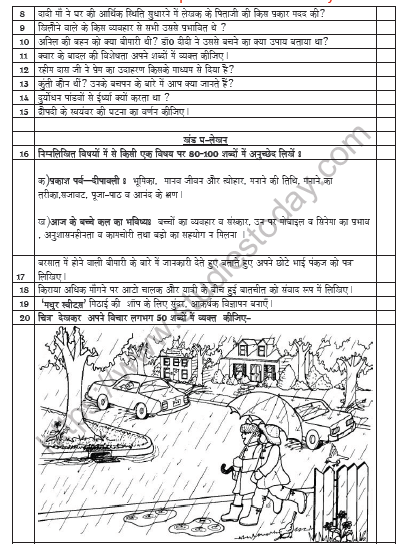 8 दादी माँ ने घर की आर्थिक स्थिति सुधारने में लेखक के पिताजी की किस प्रकार मदद की?
9 खिलौने वाले के किस व्यवहार से सभी उससे प्रभावित थे ?
10 अनिल की बहन को क्या बीमारी थी? डॉ0 दीदी ने उससे बचने का क्या उपाय बताया था?
11 क्वार के बादल की विशेषता अपने शब्दों में व्यक्त कीजिए।
12 रहीम दास जी ने प्रेम का उदाहरण किसके माध्यम से दिया है?
13 कुंती कौन थीं? उनके बचपन के बारे में आप क्या जानते हैं?
14 दुर्योधन पांडवों से ईर्ष्या क्यों करता था ?
15 द्रौपदी के स्वयंवर की घटना का वर्णन कीजिए।
खंड घ-लेखन
16 निम्नलिखित विषयों में से किसी एक विषय पर 80-100 शब्दों में अनुच्छेद लिखें ः
क)प्रकाश पर्व—दीपावली ः भूमिका, मानव जीवन और त्योहार, मनाने की तिथि, मनाने का
तरीका,सजावट, पूजा-पाठ व आनंद के क्षण।
ख)आज के बच्चे कल का भविष्यः बच्चों का व्यवहार व संस्कार, उन पर मोबाइल व सिनेमा का प्रभाव
, अनुशासनहीनता व कामचोरी तथा बड़ों का सहयोग न मिलना
बरसात में होने वाली बीमारी के बारे में जानकारी देते हुए अपने छोटे भाई पंकज को पत्र
17 लिखिए।
18 किराया अधिक माँगने पर आटो चालक और यात्री के बीच हुई बातचीत को संवाद रूप में लिखिए।
19 'मधुर स्वीट्स' मिठाई की शॉप के लिए सुंदर, आकर्षक विज्ञापन बनाएँ।
20 चित्र देखकर अपने विचार लगभग 50 शब्दों में व्यक्त कीजिए-